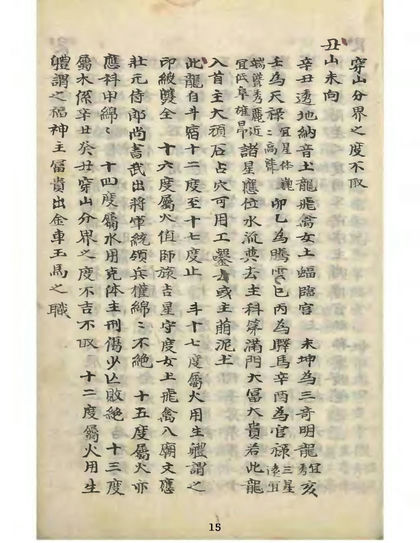 穿山分界之度不取
丑山未向
辛丑透地納音土龍飛禽女土蝠臨官 未坤為三奇明龍宜亥
壬為天祿宜星体巍二高聳 卯乙為騰雲巳丙為驛馬辛酉為官祿三星遠宜
端聳秀麗近宜低阜雄昂諸星應位水流巽去主科第滿門大富大貴若此龍
入首主大頑石占穴可用工鑿去或主崩泥土
此龍自斗宿十二度至十七度止 斗十七度屬火用生體謂之
印綬雙全 十六度屬火值師旅吉星守度女土飛禽入廟文應
壯元侍郎尚書武出將軍統領兵權綿〻不絕 十五度屬火亦
應科甲綿〻 十四度屬水用克体主刑傷少亡敗絕 十三度
屬木係辛丑癸丑穿山分界之度不吉不取 十二度屬火用生
體謂之福神主富貴出金車玉馬之職
15